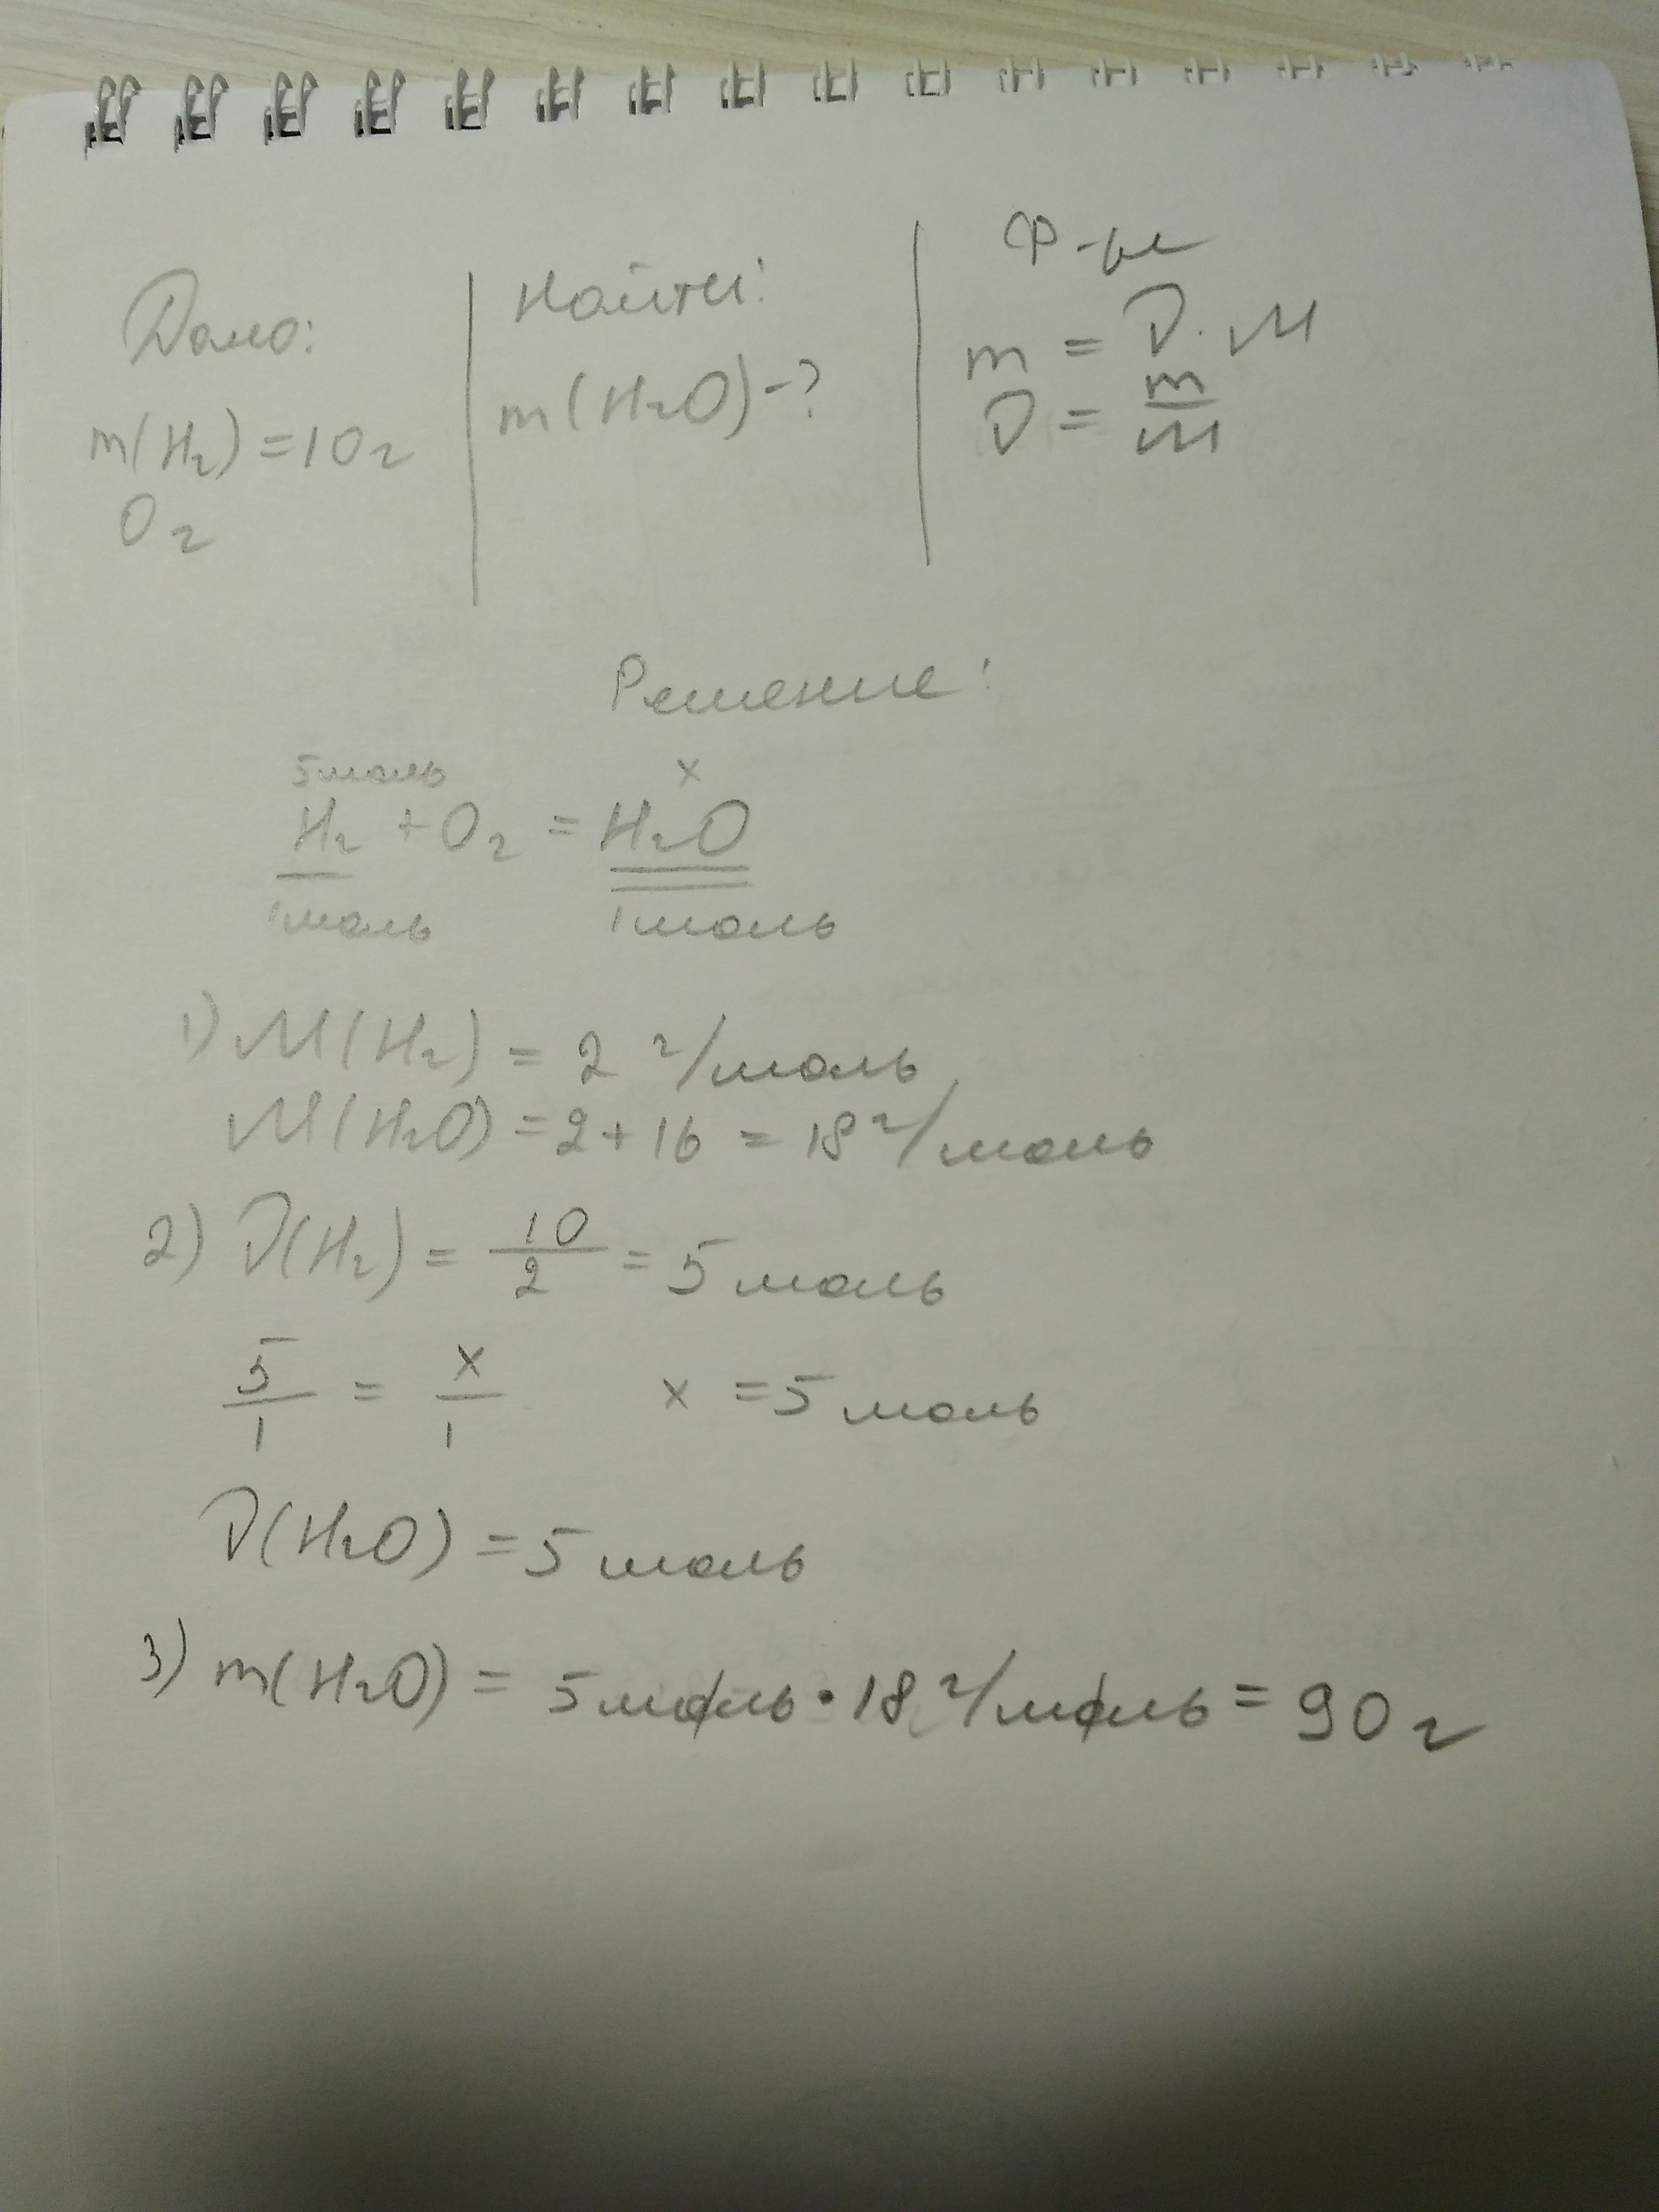 Дано:
m(H₂) = 10г
O₂
Найти:
m(H₂O) - ?
Ф-лы
m = ν · M
ν = m/M
Решение:
5моль x
H₂ + O₂ = H₂O
1моль 1моль
1) M(H₂) = 2 г/моль
M(H₂O) = 2 + 16 = 18 г/моль
2) ν(H₂) = 10/2 = 5 моль
5/1 = x/1 x = 5 моль
ν(H₂O) = 5 моль
3) m(H₂O) = 5 моль · 18 г/моль = 90 г